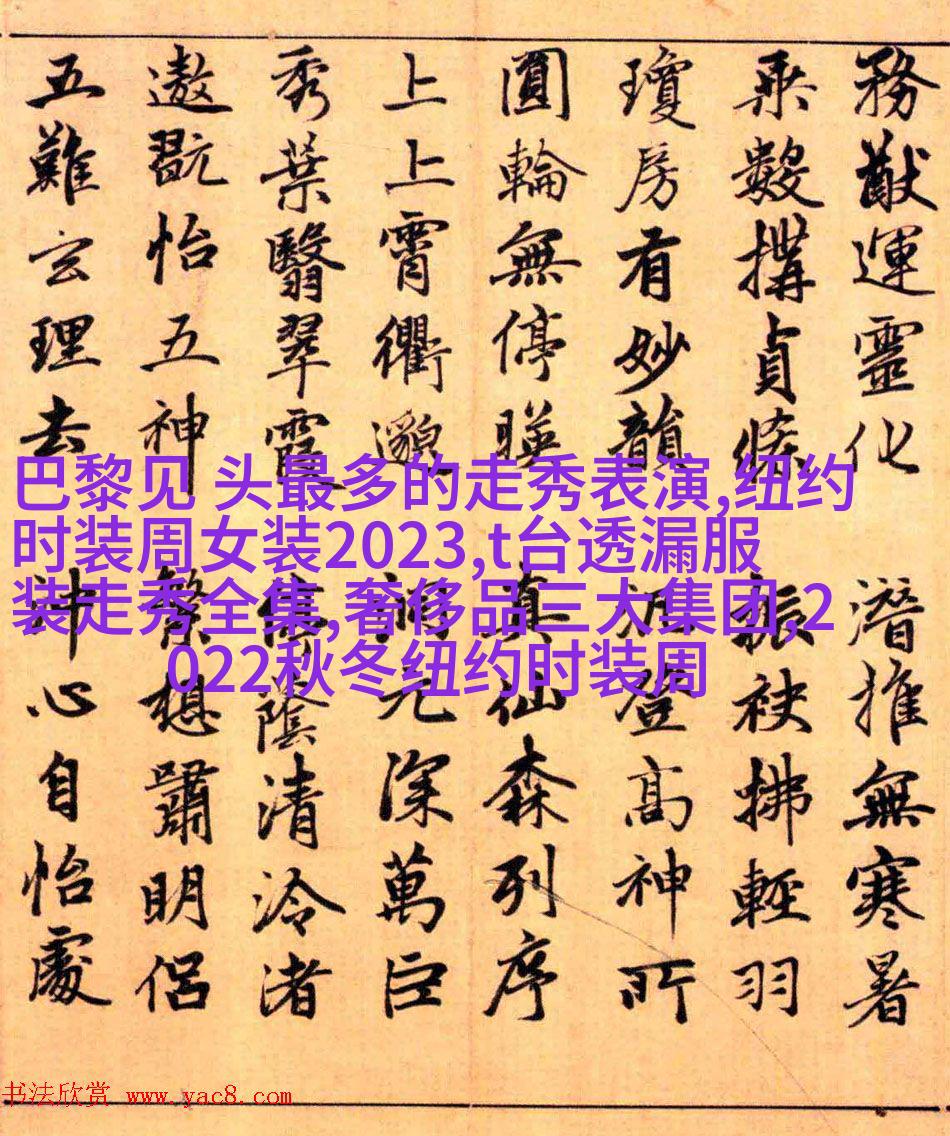 務猷運靈化 潛推無寒暑
乘數搆貞條 振袂拂輕羽
瓊房有妙韻 登高神所
圓輪無停暎 真仙森列序
上上霄衢邈 元深萬巨
秀葉翳翠霞 蔭清泠渚
遨翫怡五神 想嘯明侶
五難玄理去 沖心自怡處
巴黎见 头最多的走秀表演,纽约
时装周女装2023,t台透漏服
装走秀全集,奢侈品三大集团,2
022秋冬纽约时装周
书法欣赏 www.yac8.com